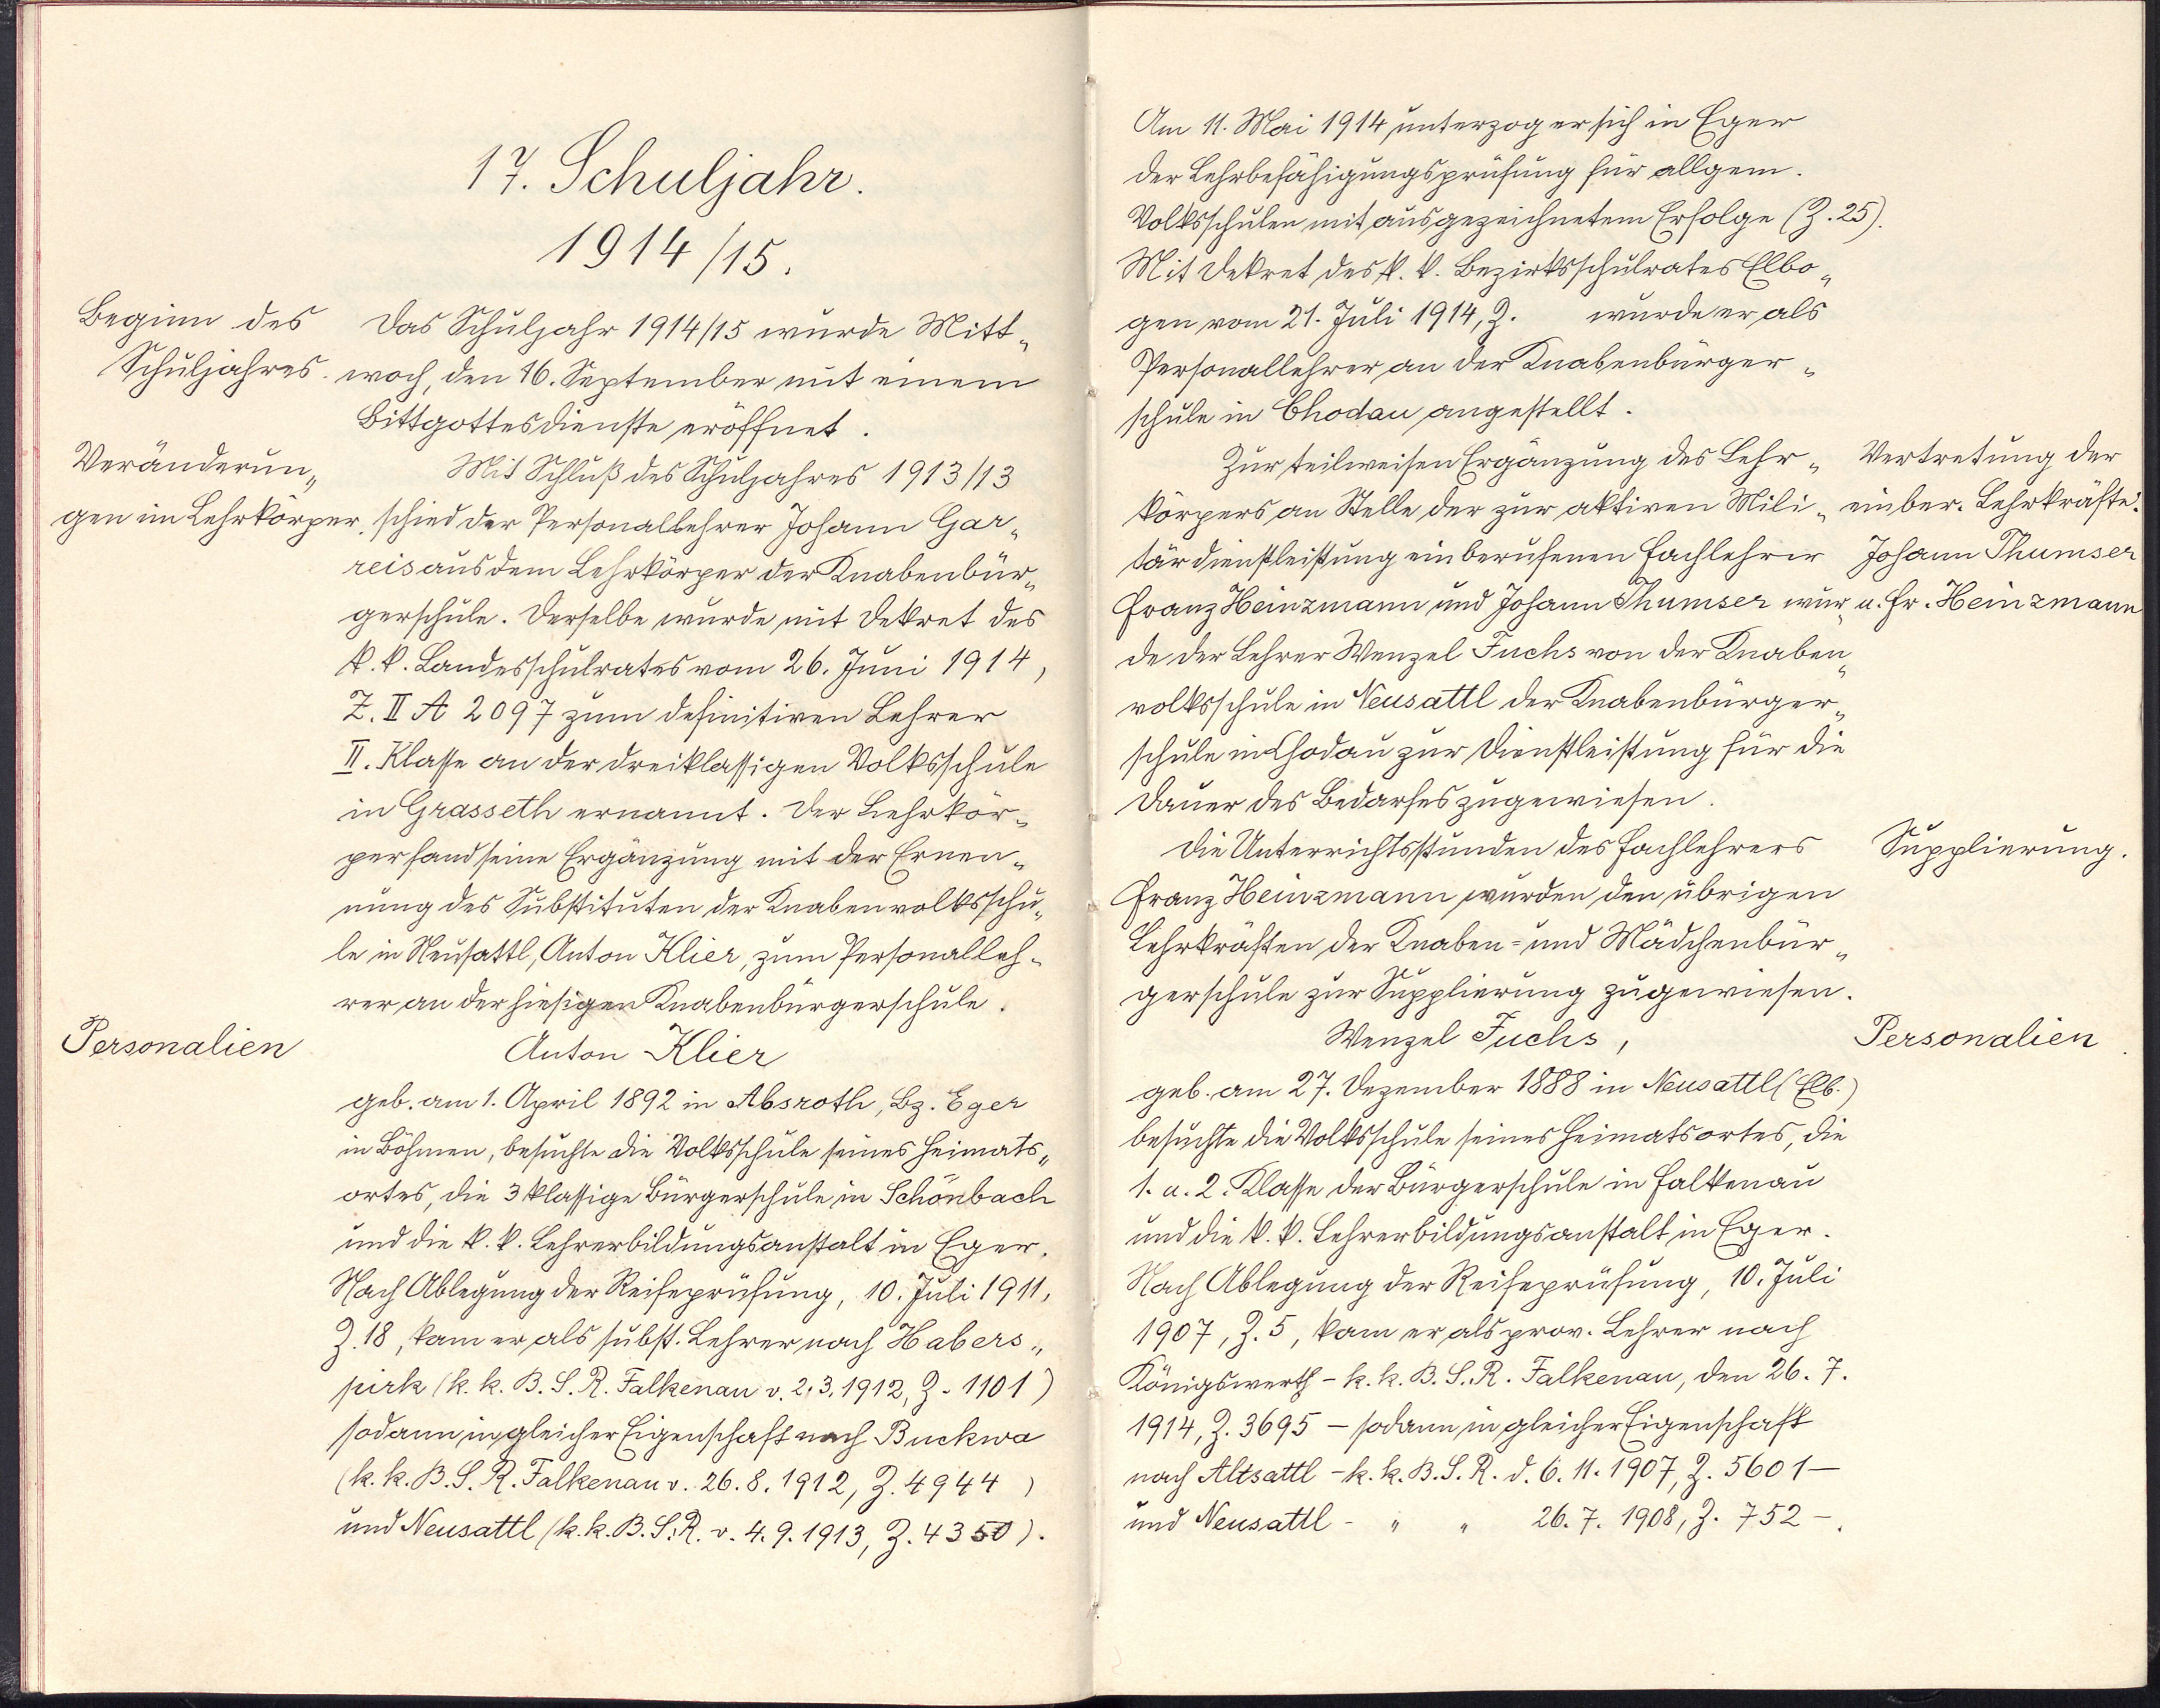 17. Schuljahr.
1914/15.
Beginn des
Schuljahres.
Das Schuljahr 1914/15 wurde Mitt„
woch, den 16. September mit einem
Bittgottesdienste eröffnet.
Veränderun„
gen im Lehrkörper.
Mit Schluß des Schuljahres 1913/13
schied der Personallehrer Johann Gar„
reis aus dem Lehrkörper der Knabenbür„
gerschule. Derselbe wurde mit Dekret des
k. k. Landesschulrates vom 26. Juni 1914,
Z. II A 2097 zum definitiven Lehrer
II. Klasse an der dreiklassigen Volksschule
in Grasseth ernannt. Der Lehrkör„
per fand seine Ergänzung mit der Ernen„
nung des Substituten der Knabenvolksschu„
le in Neusattl, Anton Klier, zum Personalleh„
rer an der hiesigen Knabenbürgerschule.
Personalien
Anton Klier
geb. am 1. April 1892 in Absroth, Bz. Eger
in Böhmen, besuchte die Volksschule seines Heimats„
ortes, die 3 klassige Bürgerschule in Schönbach
und die k. k. Lehrerbildungsanstalt in Eger.
Nach Ablegung der Reifeprüfung, 10. Juli 1911,
Z. 18, kam er als subst. Lehrer nach Habers„
pirk (k. k. B. S. R. Falkenau v. 2. 3. 1912, Z. 1101)
sodann in gleicher Eigenschaft nach Buckwa
(k. k. B. S. R. Falkenau v. 26. 8. 1912, Z. 4944)
und Neusattl (k. k. B. S. R. v. 4. 9. 1913, Z. 4350).
Am 11. Mai 1914 unterzog er sich in Eger
der Lehrbefähigungsprüfung für allgem.
Volksschulen mit ausgezeichnetem Erfolge (Z. 25).
Mit Dekret des k. k. Bezirksschulrates Elbo„
gen vom 21. Juli 1914, Z. wurde er als
Personallehrer an der Knabenbürger„
schule in Chodau angestellt.
Zur teilweisen Ergänzung des Lehr„
körpers an Stelle der zur aktiven Mili„
tärdienstleistung einberufenen Fachlehrer
Franz Heinzmann und Johann Thumser wur„
de der Lehrer Wenzel Fuchs von der Knaben„
volksschule in Neusattl der Knabenbürger„
schule in Chodau zur Dienstleistung für die
Dauer des Bedarfes zugewiesen.
Vertretung der
einber. Lehrkräfte.
Johann Thumser
u. Fr. Heinzmann
Die Unterrichtsstunden des Fachlehrers
Franz Heinzmann wurden den übrigen
Lehrkräften der Knaben= und Mädchenbür„
gerschule zur Supplierung zugewiesen.
Supplierung.
Wenzel Fuchs,
Personalien
geb. am 27. Dezember 1888 in Neusattl (Elb.)
besuchte die Volksschule seines Heimatsortes, die
1. u. 2. Klasse der Bürgerschule in Falkenau
und die k. k. Lehrerbildungsanstalt in Eger.
Nach Ablegung der Reifeprüfung, 10. Juli
1907, Z. 5, kam er als prov. Lehrer nach
Königswerth – k. k. B. S. R. Falkenau, den 26. 7.
1914, Z. 3695 – sodann in gleicher Eigenschaft
nach Altsattl – k. k. B. S. R. d. 6. 11. 1907, Z. 5601 –
und Neusattl – „ „ 26. 7. 1908, Z. 752 –.